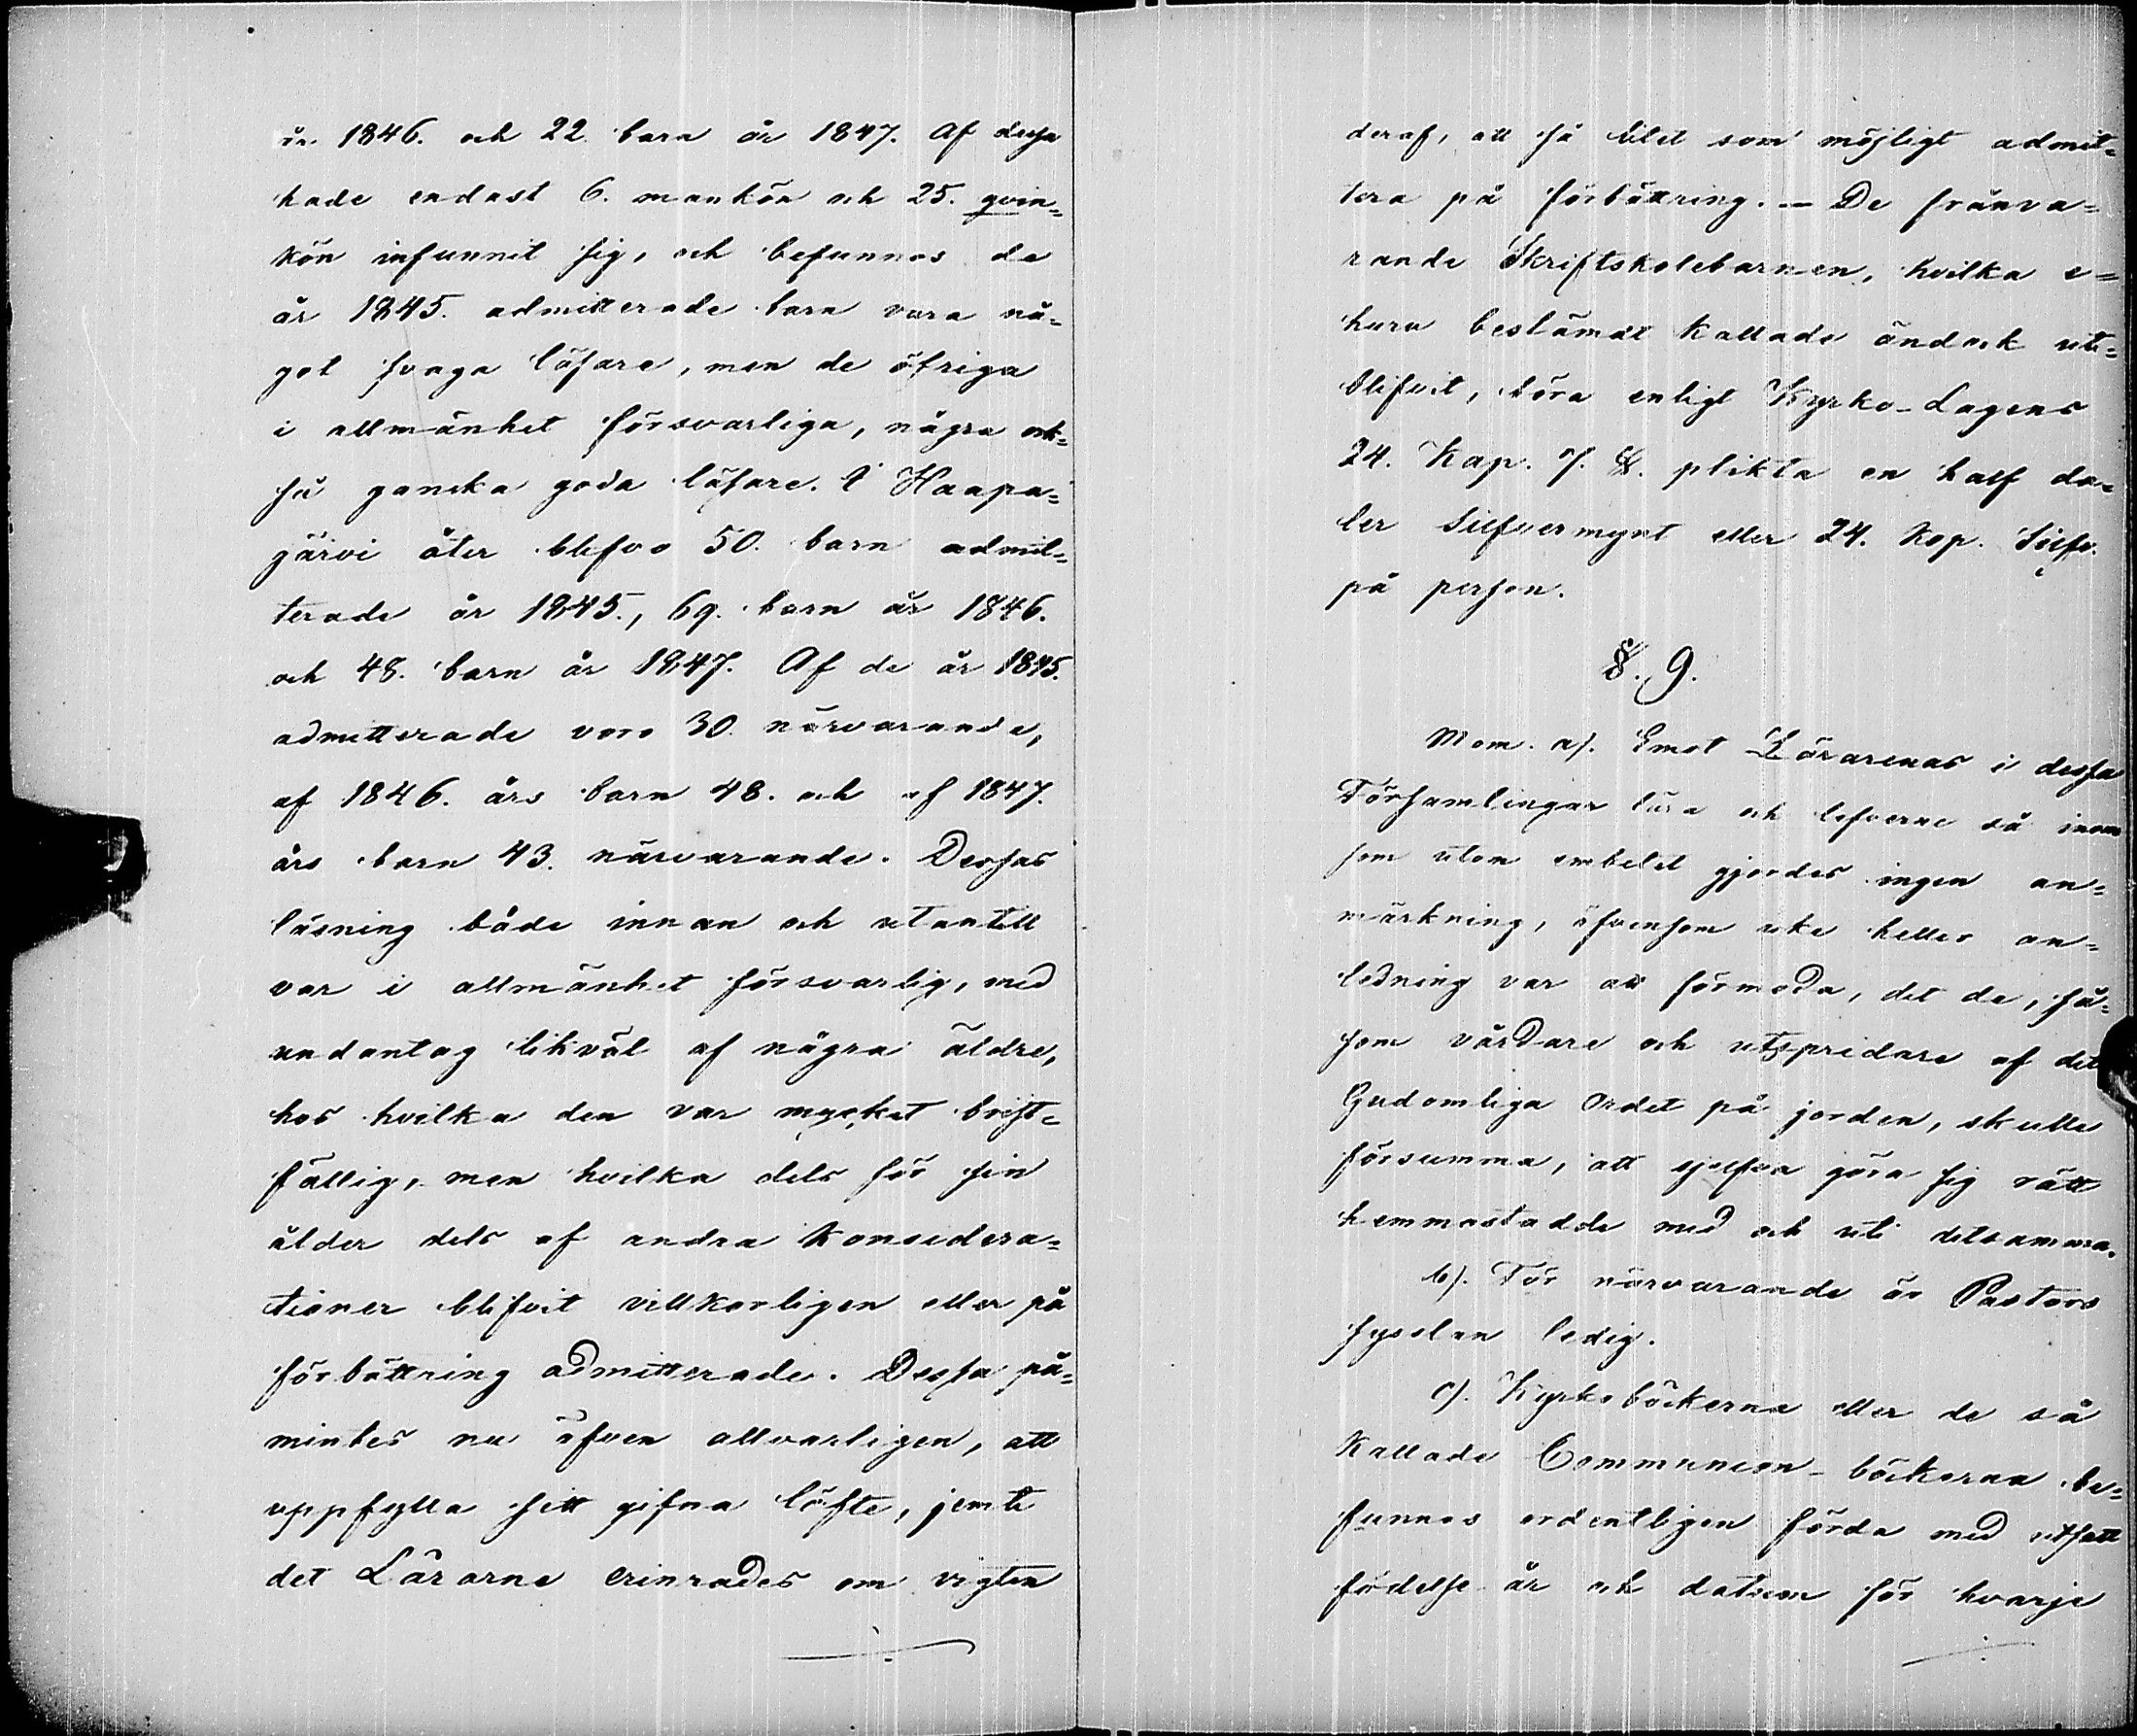 år 1846. och 22 barn år 1847. Af dessa
hade endast 6. mankön och 25. qvin=
kön infunnit sig, och befunnos de
år 1845. admitterade barn vara nå=
got svaga läsare, men de öfriga
i allmänhet försvarliga, några ock=
så ganska goda läsare. I Haapa=
järvi åter blefvo 50. barn admit=
terade år 1845., 69. barn år 1846.
och 48. barn år 1847. Af de år 1845.
admitterade voro 30. närvarande,
af 1846. års barn 48. och af 1847.
års barn 43. närvarande. Dessas
läsning både innan och utantill
var i allmänhet försvarlig, med
undantag likväl af några äldre,
hos hvilka den var mycket brist=
fällig, men hvilka dels för sin
ålder dels af andra konsidera=
tioner blifvit villkorligen eller på
förbättring admitterade. Dessa på=
mintes nu äfven allvarligen, att
uppfylla sitt gifna löfte, jemte
det Lärarne erinrades om vigten
deraf, att så litet som möjligt admit=
tera på förbättring. — De frånva=
rande Skriftskolebarnen, hvilka e=
huru bestämdt kallade ändock ute=
blifvit, böra enligt Kyrko-Lagens
24. Kap. 7. §. plikta en half da=
ler Silfvermynt eller 24. Kop. Silfv.
på person.
§. 9.
Mom. a). Emot Lärarenas i dessa
Församlingar lära och lefverne så inom
som utom embetet gjordes ingen an=
märkning, äfvensom icke heller an=
ledning var att förmoda, det de, så=
som vårdare och utspridare af det
Gudomliga Ordet på jorden, skulle
försumma, att sjelfva göra sig rätt
hemmastadde med och uti detsamma.
b). För närvarande är Pastors
sysslan ledig.
c). Kyrkoböckerna eller de så
kallade Communion-böckerna be=
funnos ordentligen förda med utsatt
födelse år och datum för hvarje